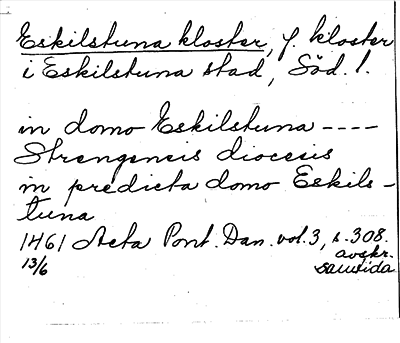 Eskilstuna kloster, f. kloster
i Eskilstuna stad, Söd. l.
in domo Eskilstuna ----
Strengensis diocesis
in predicta domo Eskils-
tuna
1461 Acta Pont. Dan. vol. 3, s. 308.
13/6 avskr.
samtida